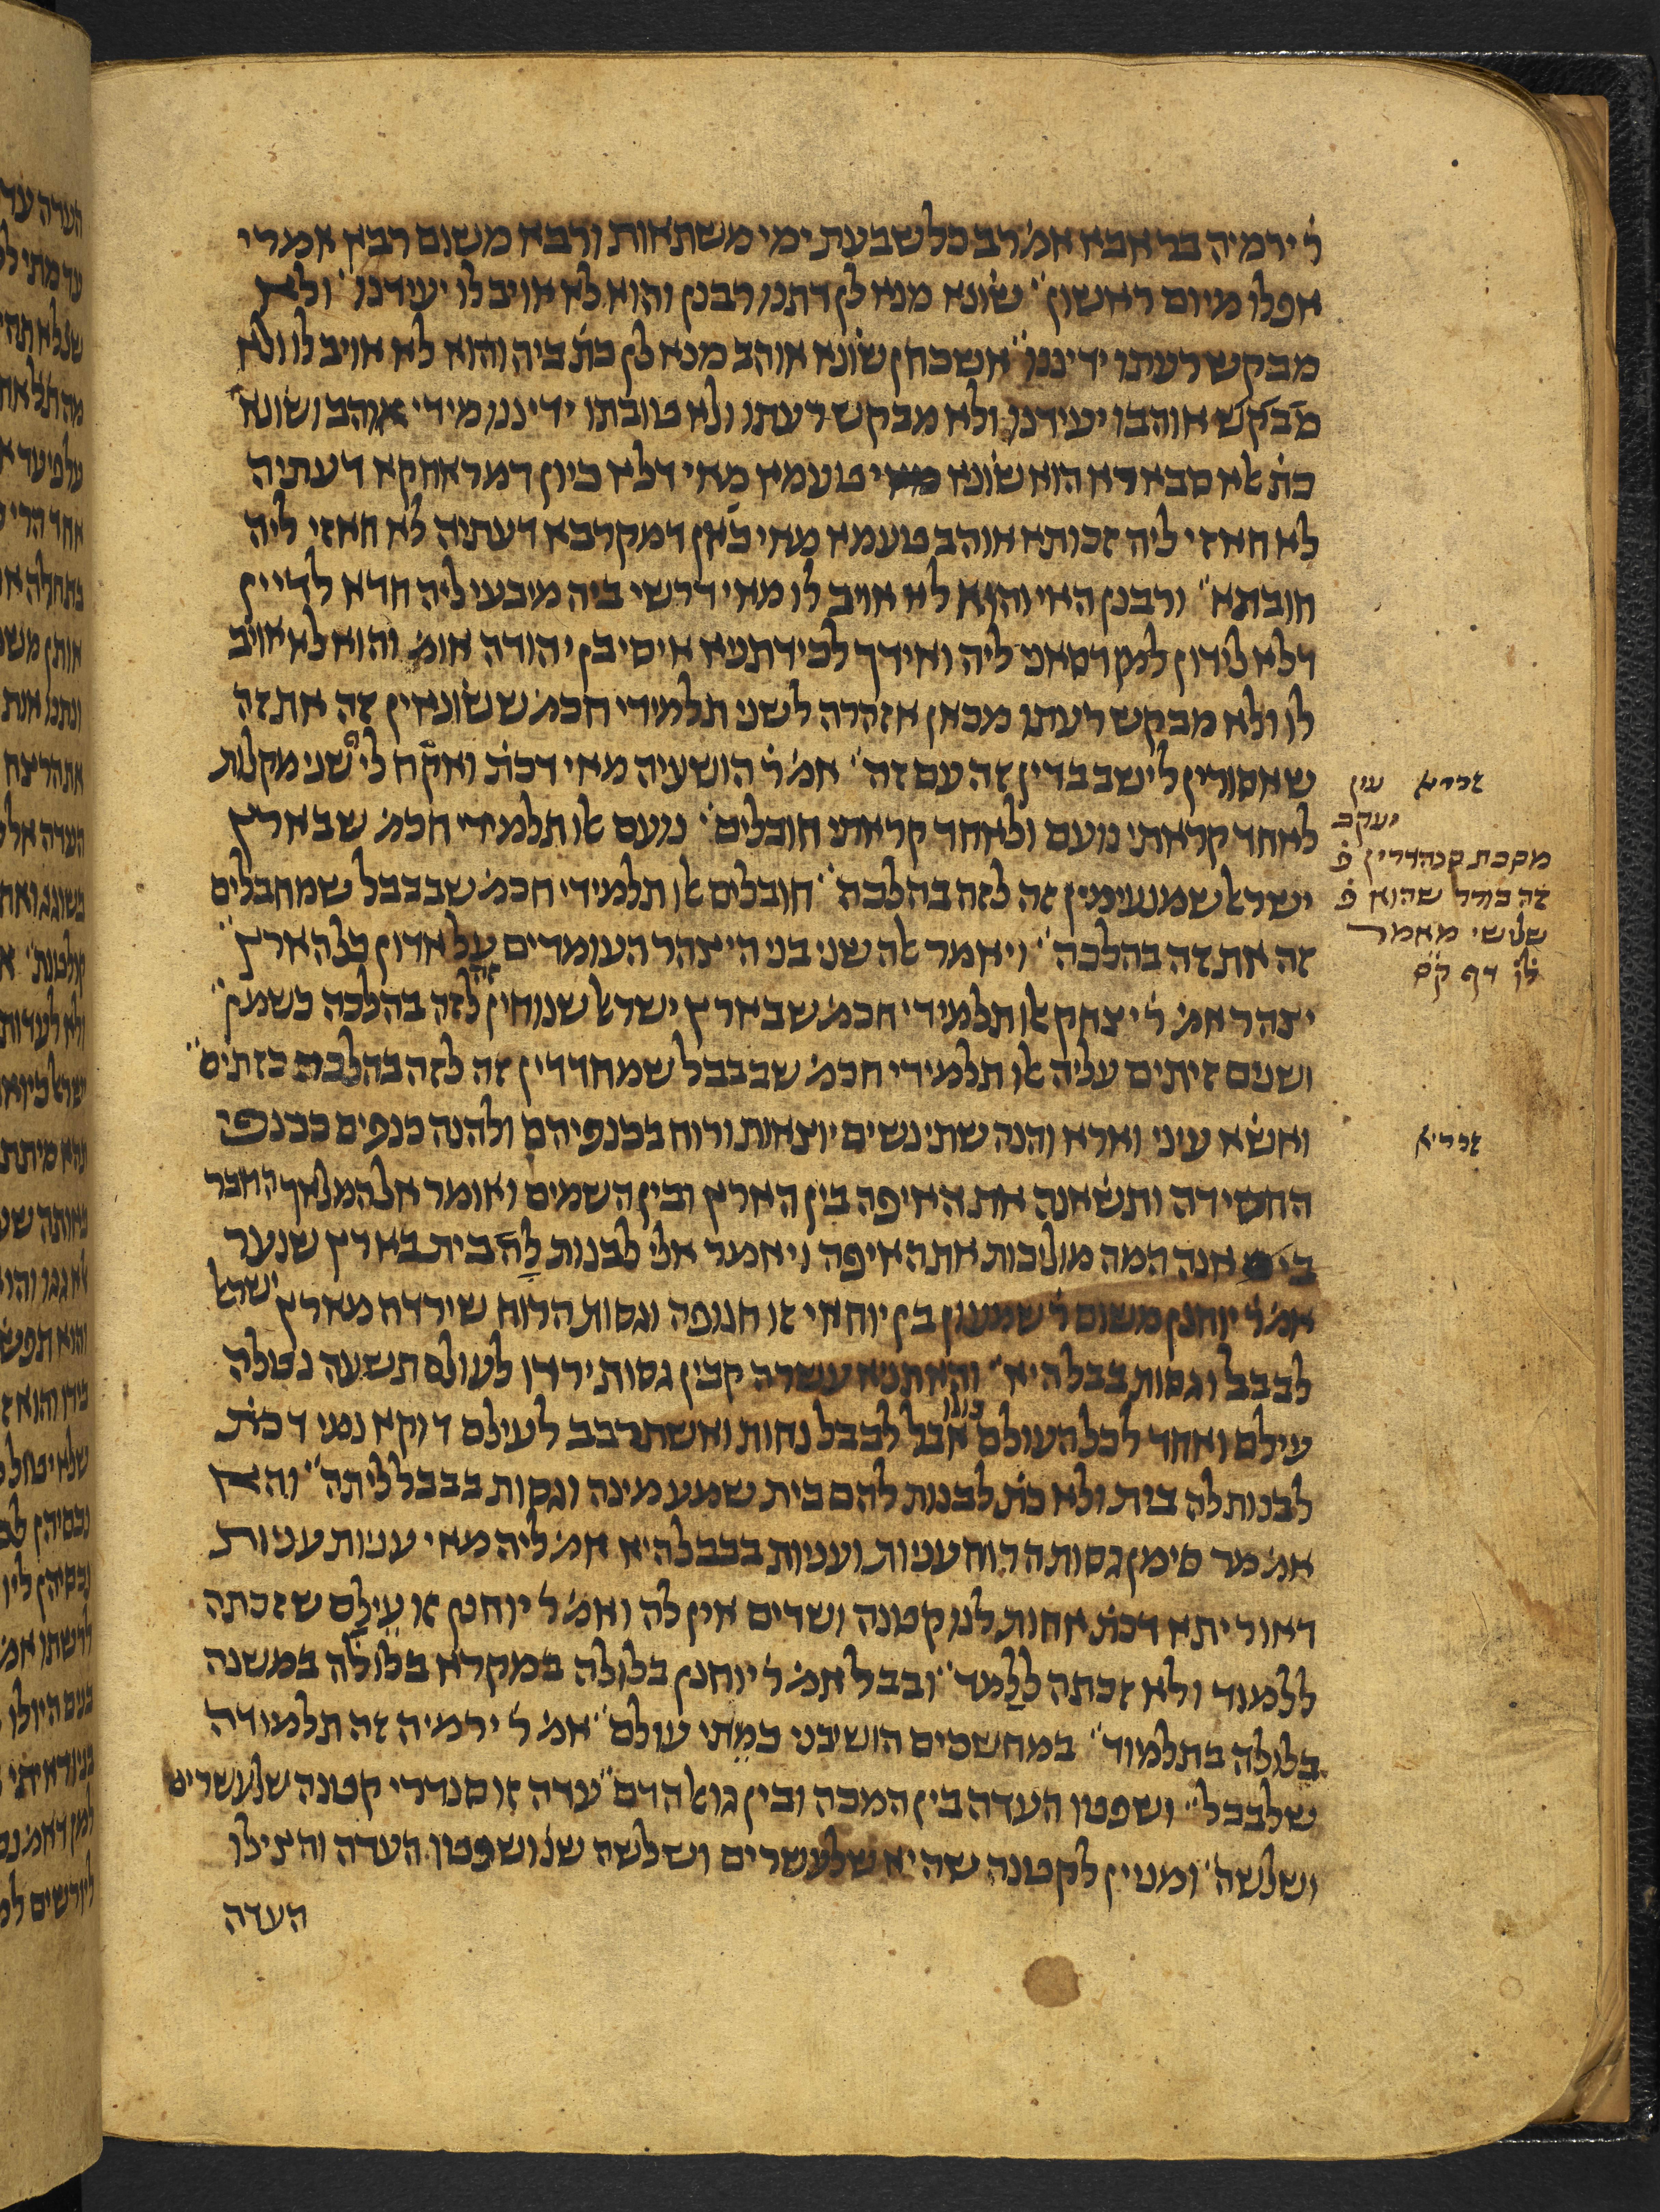 ר׳ ירמיה בר אבא אמ׳ רב כל שבעת ימי משתאות ורבא משום רבין אמרי
אפלו מיום ראשון שונא מנא לן דתנו רבנן והוא לא אויב לו יעידנו ולא
מבקש רעתו ידיננו אשכחן שונא אוהב מנא לן כת׳ ביה והוא לא אויב לו ולא
מבקש אוהבו יעידנו ולא מבקש רעתו ולא טובתו ידיננו מידי אוהב ושונא
כת׳ אלא סבארא הוא שונא טעמא מאי דלא כיון דמראחקא דעתיה
לא חאזי ליה זכותא אוהב טעמא מאי כאן דמקרבא דעתיה לא חאזי ליה
חובתא ורבנן האי והוא לא אויב לו מאי דרשי ביה מיבעי ליה חדא לדיין
דלא לידון למן דסאנ ליה ואידך לכידתניא איסי בן יהודה אומ׳ והוא לא אויב
לו ולא מבקש רעתו מכאן אזהרה לשני תלמידי חכמ׳ ששונאין זה את זה
שאסורין לישב בדין זה עם זה אמ׳ ר׳ הושעיה מאי דכת׳ ואקח לי שני מקלות
לאחד קראתי נועם ולאחד קראתי חובלים נועם אלו תלמידי חכמ׳ שבארץ
ישראל שמנעימין זה לזה בהלכה חובלים אלו תלמידי חכמ׳ שבבבל שמחבלים
זה את זה בהלכה ויאמר אלה שני בני היצהר העומדים על אדון כל הארץ
יצהר אמ׳ ר׳ יצחק אלו תלמידי חכמ׳ שבארץ ישראל שנוחין זה לזה בהלכה כשמן
ושנים זיתים עליה אלו תלמידי חכמ׳ שבבבל שמחדדין זה לזה בהלכה כזתים
ואשא עיני וארא והנה שתי נשים יוצאות ורוח בכנפיהם ולהנה כנפים ככנפי
החסידה ותשאנה את האיפה בין הארץ ובין השמים ואומר אל המלאך הדבר
בי אנה המה מוליכות את האיפה ויאמר אלי לבנות לה בית בארץ שנער
אמ׳ ר׳ יוחנן משום ר׳ שמעון בן יוחאי זו חנופה וגסות הרוח שירדה מארץ ישראל
לבבל וגסות בבבל היא והאתניא עשרה קבין גסות ירדו לעולם תשעה נטלה
עילם ואחד לכל העולם כולו אבל לבבל נחות ואשתרבב לעילם דוקא נמי דכת׳
לבנות לה בית ולא כת׳ לבנות להם בית שמע מינה וגסות בבבל ליתה והא
אמ׳ מר סימן גסות הרוח עניות ועניות בבבל היא אמ׳ ליה מאי עניות עניות
דאוריתא דכת׳ אחות לנו קטנה ושדים אין לה ואמ׳ ר׳ יוחנן זו עילם שזכתה
ללמוד ולא זכתה ללמד ובבל אמ׳ ר׳ יוחנן בלולה במקרא בלולה במשנה
בלולה בתלמוד במחשכים הושיבני כמתי עולם אמ׳ ר׳ ירמיה זה תלמודה
שלבבל ושפטו העדה בין המכה ובין גואל הדם עדה זו סנדרי קטנה שלעשרים
ושלשה ומנין לקטנה שהיא שלעשרים ושלשה שנ׳ ושפטו העדה והצילו
העדה
זכריא עין
יעקב
מסכת סנהדרין פ׳
זה בורר שהוא פ׳
שלישי מאמר
דף
זכריא